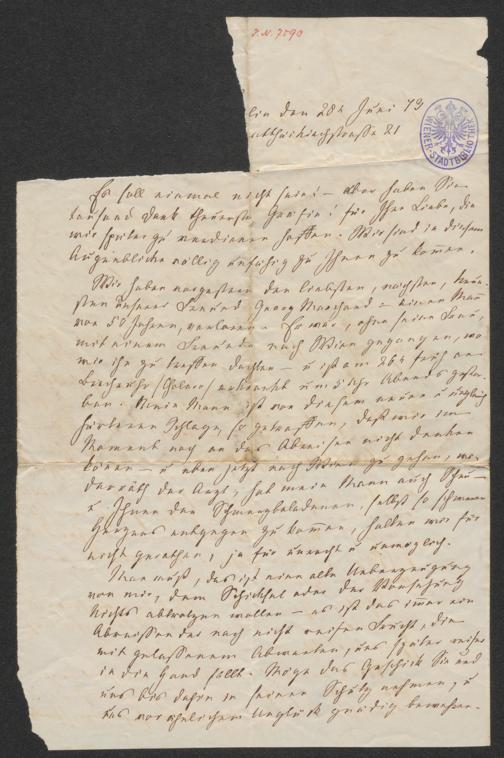 J. N. 7590
lin den 28t Juni 73
straße 21
WIENER STADTBIBLIOTHEK
Es soll einmal nicht sein! – aber haben Sie
tausend Dank theuerste Gräfin! für Ihre Liebe, die
wir später zu verdienen hoffen. Wir sind in diesem
Augenblicke völlig unfähig zu Ihnen zu kommen.
Wir haben vorgestern den liebsten, nächsten, treu-
sten unserer Freunde Georg = einen Mann
von 50 Jahren, verloren. Er war, ohne seine Frau,
mit einem Freunde nach Wien gegangen, wo
wir ihn zu treffen dachten – u ist am 26t früh an
(Cholera) erkrankt u um 5 Uhr Abends gestor-
ben. Mein Mann ist von diesem neuen u
Schlage, so getroffen, daß wir im
Moment noch an das Abreisen nicht denken
können – u eben jetzt nach Wien zu gehen, wi-
derräth der Arzt, hat mein Mann auch Scheu –
u Ihnen den Schmerzbeladenen, selbst so schweren
Herzens entgegen zu kommen, halten wir für
nicht gerathen, ja für unrecht u unmöglich.
Man muß, das ist eine alte Ueberzeugung
von mir, dem Schicksal oder der Vorsehung
Nichts abtrotzen wollen – es ist das immer ein
Abreißen der noch nicht reifen Frucht, die
mit gelassenem Abwarten, uns später
in die Hand fällt. Möge das Geschick Sie und
uns bis dahin in seinen Schutz nehmen, u
uns vor Unglück gnädig bewahren.